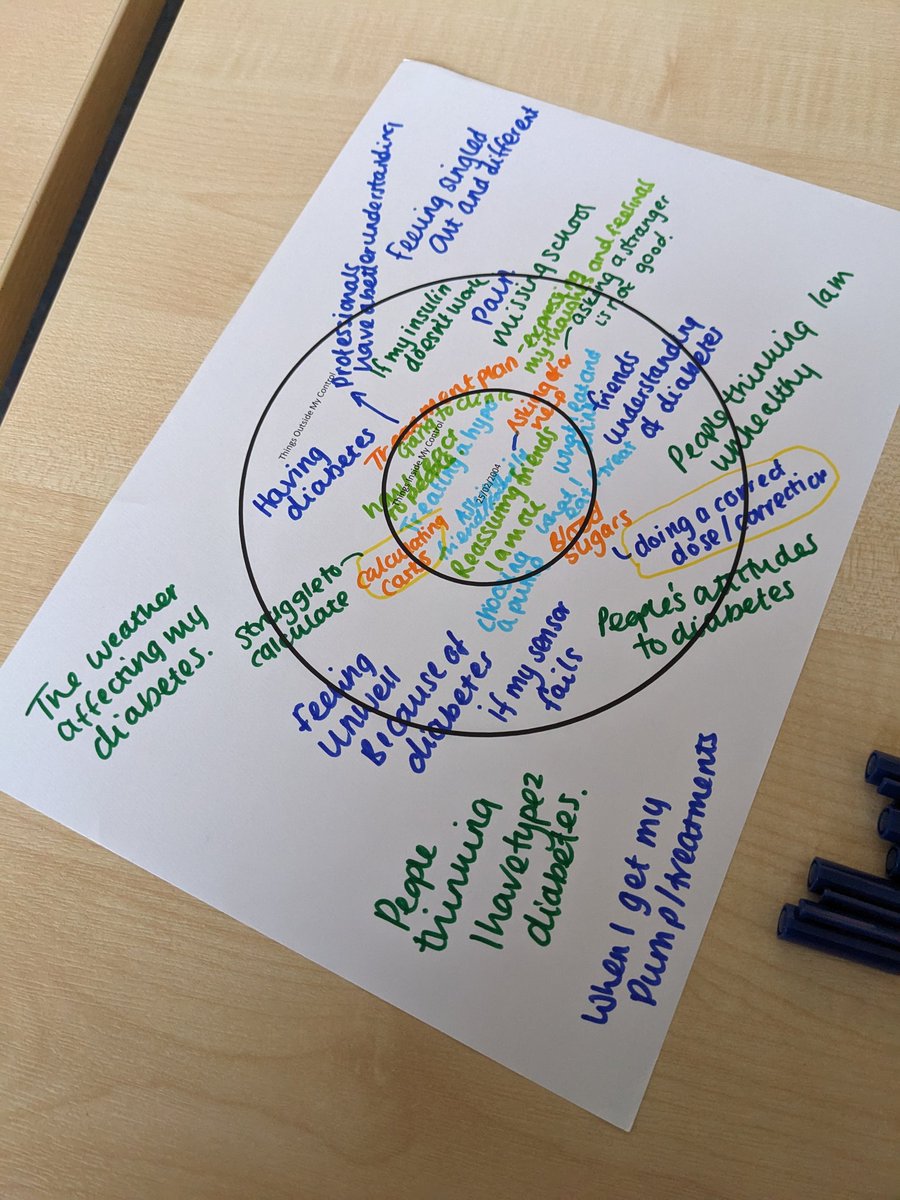 professionals
have a better understanding
Feeling singled
out and different
If my insulin
doesn't work
Pain
missing school
- expressing
my thoughts and feelings
- asking a stranger
is at good.
Things Outside My Control
Having
diabetes
Treatment plan
Going to clinic
Treating a hypo
Things Inside My Control
25/02/2004
- Asking for
help
friends
understanding
of diabetes
People thinking I am
unhealthy
Reassuring friends
I am ok
what I
Blood
sugars
doing a correct
dose/correction
calculating
carbs
struggle to
calculate
choosing
a pump
People's attitudes
to diabetes
The weather
affecting my
diabetes.
Feeling
Unwell
Because of
diabetes
if my sensor
fails
People
thinking
I have type 2
diabetes.
When I get my
Pump/treatments